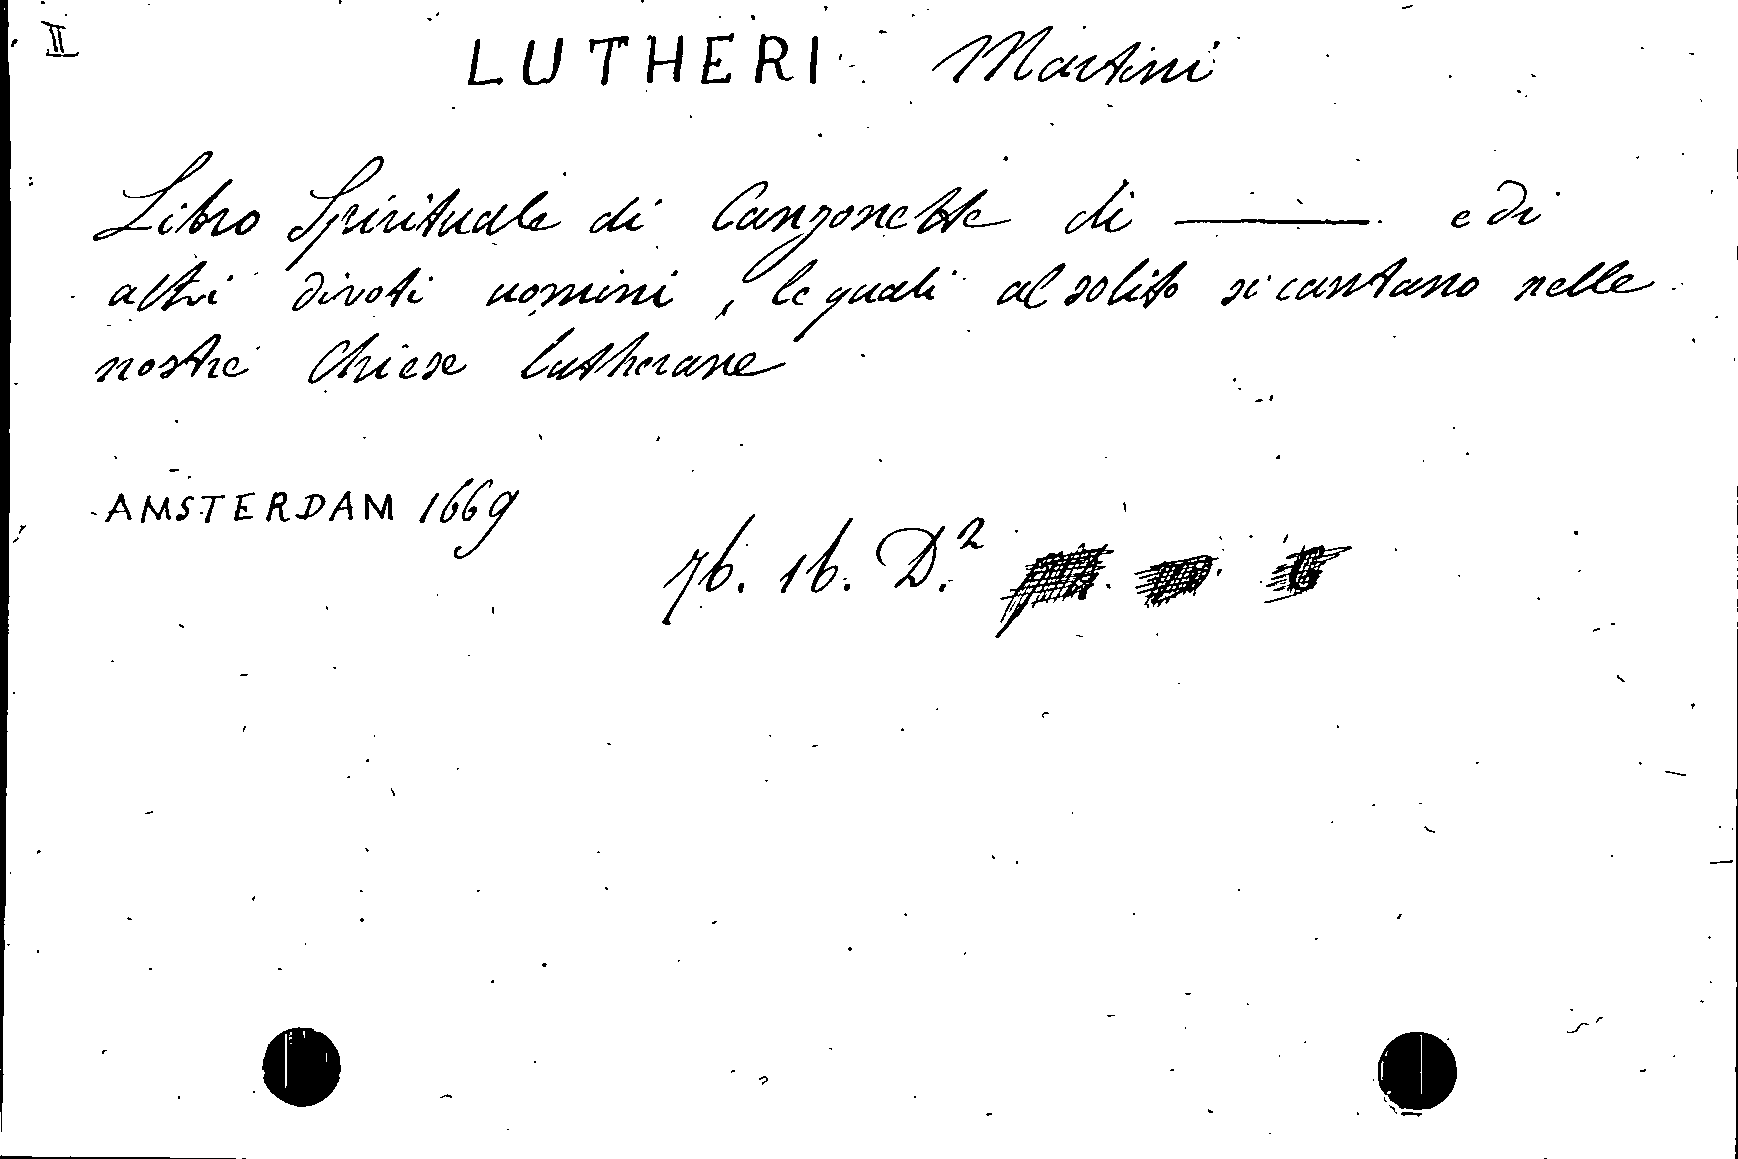 II
LUTHERI Martini
Libro Spirituale di Canzonette di ——— e di
altri divoti uomini, le quali al solito si cantano nelle
nostre Chiese lutherane
AMSTERDAM 1669
76. 16. D.²